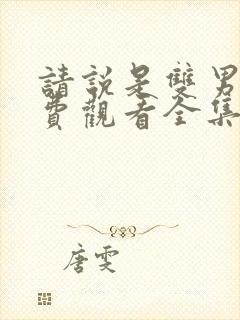 請說是雙男
費觀看全集
唐雯